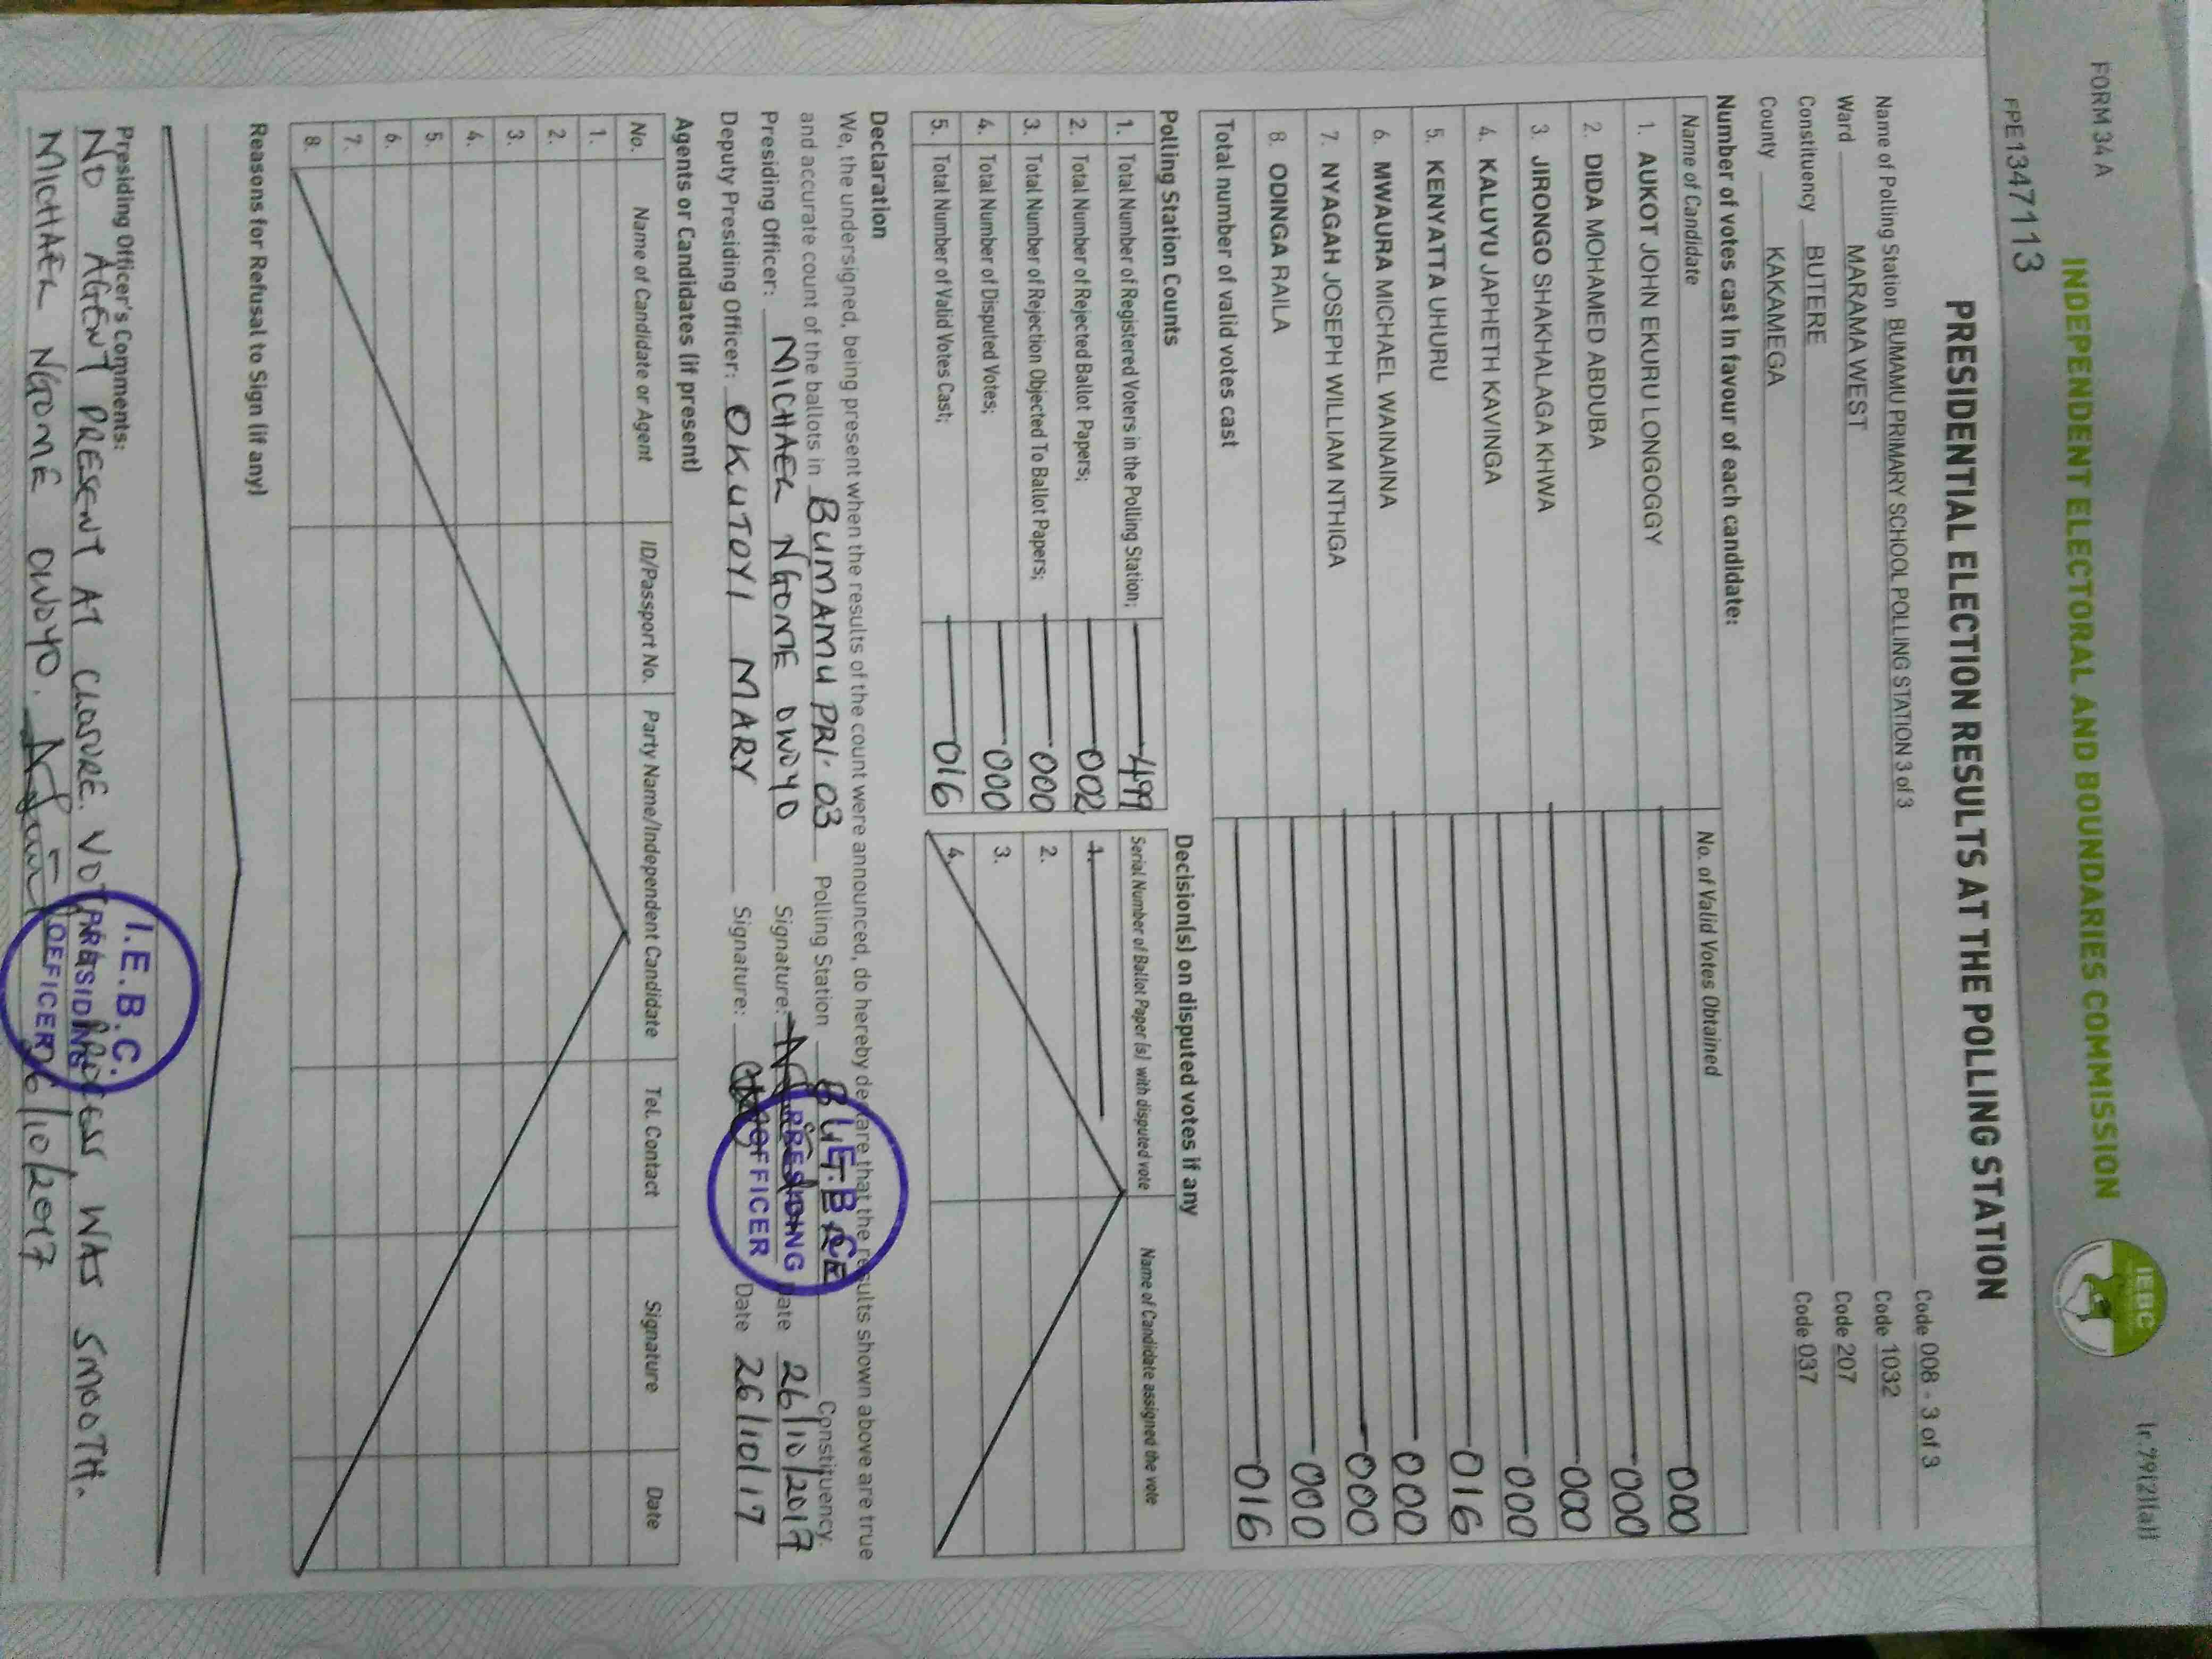 FORM 34 A
INDEPENDENT ELECTORAL AND BOUNDARIES COMMISSION
IEBC
FPE1347113
PRESIDENTIAL ELECTION RESULTS AT THE POLLING STATION
Name of Polling Station BUMAMU PRIMARY SCHOOL POLLING STATION 3 of 3 Code 008 - 3 of 3
Ward MARAMA WEST Code 1032
Constituency BUTERE Code 207
County KAKAMEGA Code 037
Number of votes cast in favour of each candidate:
Name of Candidate No. of Valid Votes Obtained
1. AUKOT JOHN EKURU LONGOGGY 000
2. DIDA MOHAMED ABDUBA 000
3. JIRONGO SHAKHALAGA KHWA 000
4. KALUYU JAPHETH KAVINGA 000
5. KENYATTA UHURU 016
6. MWAURA MICHAEL WAINAINA 000
7. NYAGAH JOSEPH WILLIAM NTHIGA 000
8. ODINGA RAILA 000
Total number of valid votes cast 016
Polling Station Counts
1. Total Number of Registered Voters in the Polling Station; 499
2. Total Number of Rejected Ballot Papers; 002
3. Total Number of Rejection Objected To Ballot Papers; 000
4. Total Number of Disputed Votes; 000
5. Total Number of Valid Votes Cast; 016
Decision(s) on disputed votes if any
Serial Number of Ballot Paper (s) with disputed vote Name of Candidate assigned the vote
1.
2.
3.
4.
Declaration
We, the undersigned, being present when the results of the count were announced, do hereby declare that the results shown above are true
and accurate count of the ballots in BUMAMU PRI. 03 Polling Station BUTERE Constituency.
Presiding Officer: MICHAEL NGOME OWOYO Signature: Date 26/10/2017
Deputy Presiding Officer: OKUTOYI MARY Signature: Date 26/10/17
I.E.B.C.
PRESIDING
OFFICER
Agents or Candidates (if present)
No. Name of Candidate or Agent ID/Passport No. Party Name/Independent Candidate Tel. Contact Signature Date
1.
2.
3.
4.
5.
6.
7.
8.
Reasons for Refusal to Sign (if any)
Presiding Officer's Comments:
NO AGENT PRESENT AT CLOSURE. VOTING PROCESS WAS SMOOTH.
MICHAEL NGOME OWOYO. 26/10/2017
I.E.B.C.
PRESIDING
OFFICER